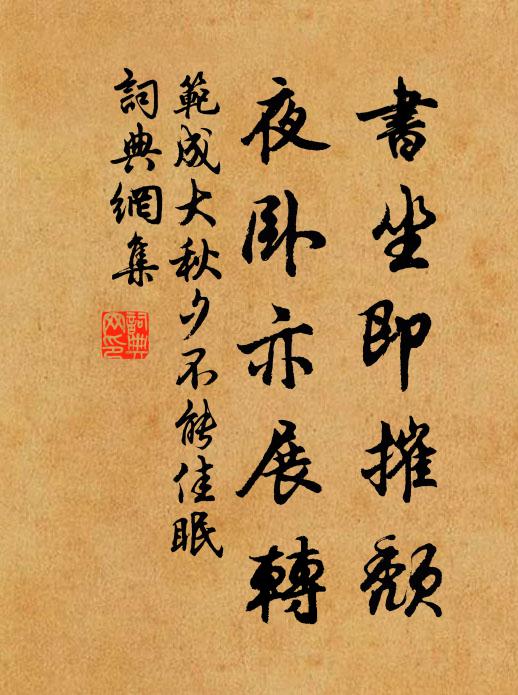 書坐即摧頹
夜臥亦展轉
範成大秋夕不能佳眠
詞典網集
詞典
网印